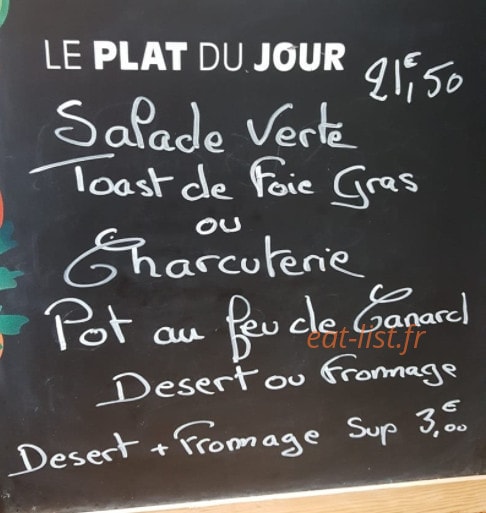 LE PLAT DU JOUR 21€,50
Salade Verte
Toast de Foie Gras
ou
Charcuterie
Pot au feu de Canard
eat-list.fr
Desert ou Fromage
Desert + Fromage Sup 3,€00